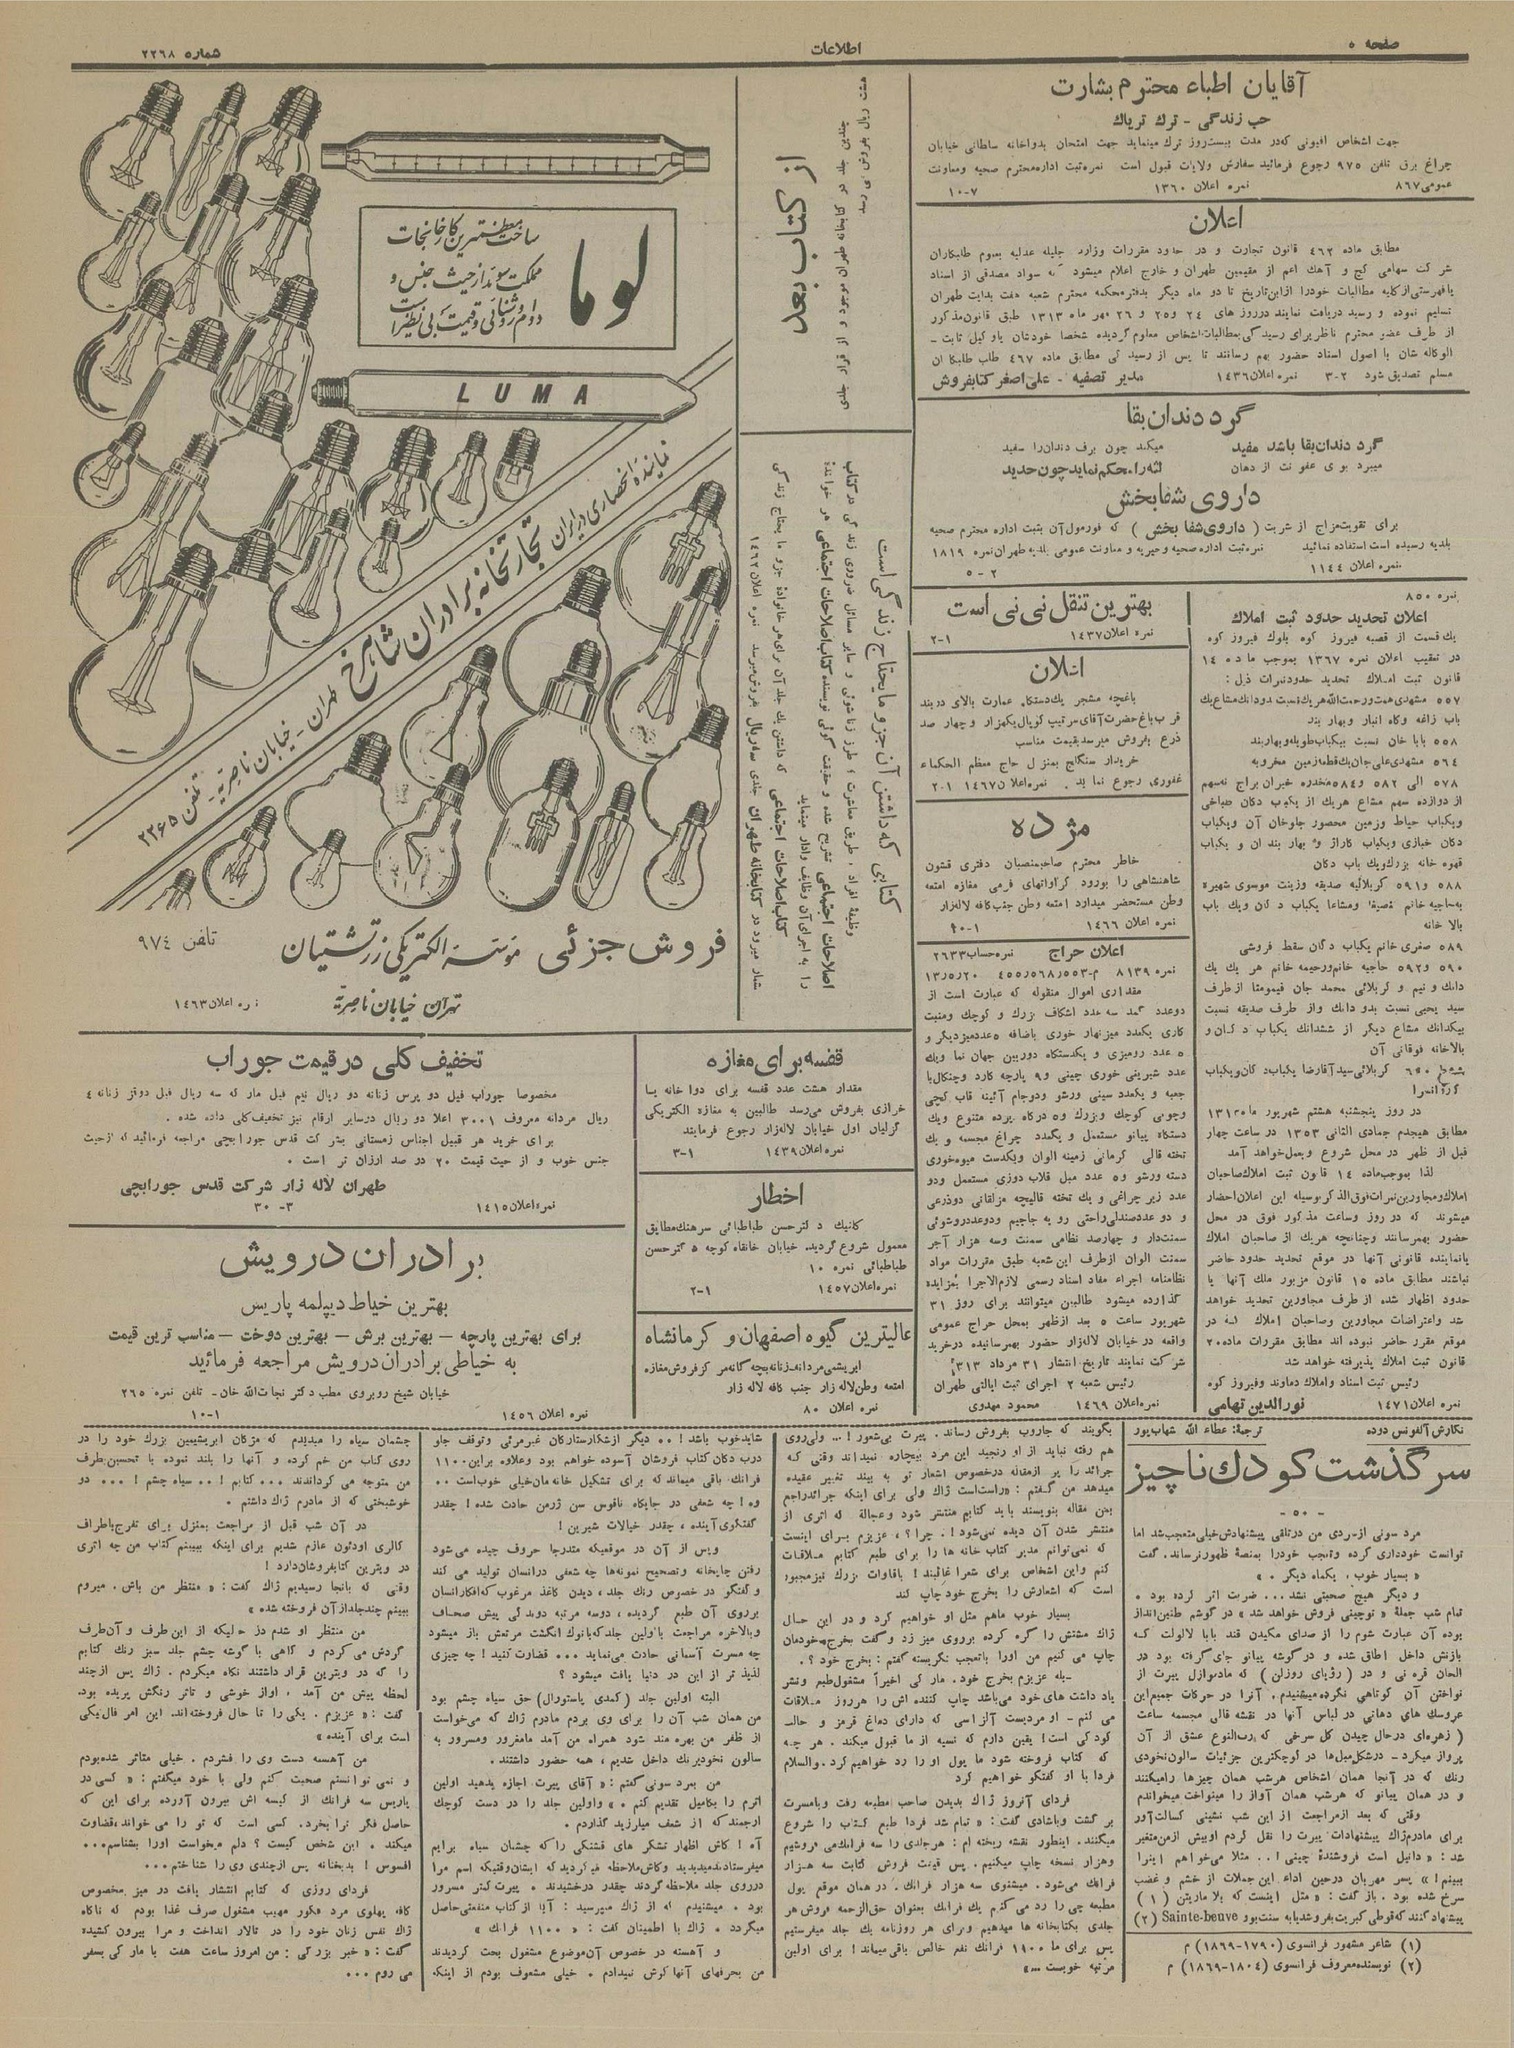 صفحه ۵
اطلاعات
شماره ۲۲۶۸
آقایان اطباء محترم بشارت
حب زندگی - ترك تریاك
جهت اشخاص افیونی که در مدت بیست روز ترك مینماید جهت امتحان بدواخانه سلطانی خیابان
چراغ برق تلفن ۹۷۵ رجوع فرمائید سفارش ولایات قبول است نمره ثبت اداره محترم صحیه ومعاونت
عمومی ۸۶۷ نمره اعلان ۱۳۶۰ ۷-۱۰
اعلان
مطابق ماده ۴۶۲ قانون تجارت و در حدود مقررات وزارت جلیله عدلیه بعموم طلبکاران
شرکت سهامی گچ و آهك اعم از مقیمین طهران و خارج اعلام میشود که سواد مصدقی از اسناد
یافهرستی از کلیه مطالبات خودرا از این تاریخ تا دو ماه دیگر بدفتر محکمه محترم شعبه هفت بدایت طهران
تسلیم نموده و رسید دریافت نمایند درروز های ۲۴ و ۲۵ و ۲۶ مهر ماه ۱۳۱۳ طبق قانون مذکور
از طرف عضو محترم ناظر برای رسیدگی بمطالبات اشخاص معلوم گردیده شخصا خودشان یا وکیل ثابت -
الوکاله شان با اصول اسناد حضور بهم رسانند تا پس از رسیدگی مطابق ماده ۴۶۷ طلب طلبکاران
مسلم تصدیق شود ۲-۳ نمره اعلان ۱۴۳۶ مدیر تصفیه - علی اصغر کتابفروش
گرد دندان بقا
گرد دندان بقا باشد مفید میکند چون برف دندان را سفید
میبرد بوی عفونت از دهان لثه را محکم نماید چون حدید
داروی شفابخش
برای تقویت مزاج از شربت ( داروی شفا بخش ) که فورمول آن بثبت اداره محترم صحیه
بلدیه رسیده است استفاده نمائید نمره ثبت اداره صحیه و خیریه و معاونت عمومی بلدیه طهران نمره ۱۸۱۹
نمره اعلان ۱۱۴۴ ۲-۵
نمره ۸۵۰
اعلان تحدید حدود ثبت املاك
یك قسمت از قصبه فیروز کوه بلوك فیروز کوه
در تعقیب اعلان نمره ۱۳۶۷ بموجب ماده ۱۴
قانون ثبت املاك تحدید حدود نمرات ذیل :
۵۵۸ بابا خان نسبت بیکباب طویله و بهاربند
۵۶۴ مشهدی علی جان یك قطعه زمین مخروبه
از دوازده سهم مشاع هریك از یکباب دکان طباخی
ویکباب حیاط وزمین محصور جلوخان آن ویکباب
دکان خبازی ویکباب کاراژ و بهار بند آن و یکباب
قهوه خانه بزرك ویك باب دکان
۵۸۸ و ۵۹۱ کربلائیه صدیقه وزینت موسوی شهیره
بالا خانه
۵۸۹ صغری خانم یکباب دکان سقط فروشی
۵۹۰ و ۵۹۲ حاجیه خانم ورحیمه خانم هر یك یك
دانك و نیم و کربلائی محمد جان قیمومتا از طرف
سید یحیی نسبت بدو دانك واز طرف صدیقه نسبت
بیکدانك مشاع دیگر از ششدانك یکباب دکان و
بالاخانه فوقانی آن
در روز پنجشنبه هشتم شهریور ماه ۱۳۱۳
مطابق هیجدهم جمادی الثانی ۱۳۵۳ در ساعت چهار
قبل از ظهر در محل شروع وبعمل خواهد آمد
لذا بموجب ماده ۱۴ قانون ثبت املاك صاحبان
املاك ومجاورین نمرات فوق الذکر بوسیله این اعلان احضار
میشوند که در روز وساعت مذکور فوق در محل
حضور بهمرسانند وچنانچه هریك از صاحبان املاك
یا نماینده قانونی آنها در موقع تحدید حدود حاضر
نباشند مطابق ماده ۱۵ قانون مزبور ملك آنها با
حدود اظهار شده از طرف مجاورین تحدید خواهد
شد واعتراضات مجاورین وصاحبان املاك که در
موقع مقرر حاضر نبوده اند مطابق مقررات ماده ۲۰
قانون ثبت املاك پذیرفته خواهد شد
رئیس ثبت اسناد واملاك دماوند وفیروز کوه
نمره اعلان ۱۴۷۱ نورالدین تهامی
بهترین تنقل نی نی است
نمره اعلان ۱۴۳۷ ۱-۲
اعلان
باغچه مشجر یك دستگاه عمارت بالای دربند
قرب باغ حضرت آقای سرتیپ کوپال یکهزار و چهار صد
ذرع بفروش میرسد بقیمت مناسب
خریدار سنگلج بمنزل حاج معظم الحکماء
غفوری رجوع نماید . نمره اعلان ۱۴۶۷ ۱-۲
مژده
خاطر محترم صاحبمنصبان دفتری قشون
شاهنشاهی را بورود کراواتهای فرمی مغازه امتعه
وطن مستحضر میدارد امتعه وطن جنب کافه لاله زار
نمره اعلان ۱۴۶۶ ۱-۲۰
اعلان حراج نمره حساب ۲۶۳۳
نمره ۸۱۳۹ م-۴۵۵ر۵۶۸ر۵۵۳ ۱۳ر۵ر۲۰
مقداری اموال منقوله که عبارت است از
دوعدد کمد سه عدد اشکاف بزرك و کوچك ومنبت
کاری یکعدد میز نهار خوری باضافه ۵ عدد میز دیگر و
۵ عدد رومیزی و یکدستگاه دوربین جهان نما ویك
عدد شیرینی خوری چینی و ۹ پارچه کارد وچنگال با
جعبه و یکعدد سینی ورشو ودوجام آئینه قاب گچی
وچوبی کوچك وبزرك ۵۹ درگاه پرده متنوع ویك
دستگاه پیانو مستعمل و یکعدد چراغ مجسمه و یك
تخته قالی کرمانی زمینه الوان ویکدست میوه خوری
دسته ورشو و ۵ عدد مبل قلاب دوزی مستعمل ودو
عدد زیر چراغی و یك تخته قالیچه مزلقانی دوذرعی
و دو عدد صندلی راحتی رو به جاجیم ودو عدد روشوئی
سمنت دار و چهارصد نظامی سمنت وسه هزار آجر
سمنت الوان از طرف این شعبه طبق مقررات مواد
نظامنامه اجراء مفاد اسناد رسمی لازم الاجرا بمزایده
گذارده میشود طالبین میتوانند برای روز ۳۱
شهریور ساعت ۵ بعد از ظهر بمحل حراج عمومی
واقعه در خیابان لاله زار حضور بهمرسانیده درخرید
شرکت نمایند تاریخ انتشار ۳۱ مرداد ۱۳۱۳
رئیس شعبه ۲ اجرای ثبت ایالتی طهران
نمره اعلان ۱۴۶۹ محمود مهدوی
از کتاب بعد
چندین جلد در کتابخانه طهران موجود و از قرار جلدی
هشت ریال بفروش می رسد
کتابی که داشتن آن جزو مایحتاج زندگی است
وظیفهٔ افراد ، طریق معاشرت ؛ طرز زناشوئی و سایر مسائل ضروری زندگی در کتاب
اصلاحات اجتماعی تشریح شده و حقیقت گوئی نویسنده کتاب اصلاحات اجتماعی هر خواننده
را به اجرای آن وظایف وادار مینماید
کتاب اصلاحات اجتماعی که داشتن یك جلد آن برای هر خانواده جزو ما یحتاج زندگی
شمار میرود در کتابخانه طهران جلدی سه ریال بفروش میرسد نمره اعلان ۱۴۶۲
لوما
ساخت معظمترین کارخانجات
مملکت سوئد از حیث جنس و
دوام و روشنائی و قیمت بی نظیر است
LUMA
نماینده انحصاری در ایران
تجارتخانه برادران شاهرخ
طهران - خیابان ناصریه - تلفن ۲۳۶۵
فروش جزئی مؤسسه الکتریکی زرتشتیان تلفن ۹۷۴
تهران خیابان ناصریه
نمره اعلان ۱۴۶۳
قفسه برای مغازه
مقدار هشت عدد قفسه برای دوا خانه یا
خرازی بفروش می رسد طالبین به مغازه الکتریکی
گرلیان اول خیابان لاله زار رجوع فرمایند
نمره اعلان ۱۴۳۹ ۱-۳
اخطار
کلنیك دکتر حسن طباطبائی سرهنك مطابق
معمول شروع گردید. خیابان خانقاه کوچه دکتر حسن
طباطبائی نمره ۱۰
نمره اعلان ۱۴۵۷ ۱-۲
عالیترین گیوه اصفهان و کرمانشاه
ابریشمی مردانه-زنانه بچه گانه مرکز فروش مغازه
امتعه وطن لاله زار جنب کافه لاله زار
نمره اعلان ۸۰
تخفیف کلی در قیمت جوراب
مخصوصا جوراب فیل دو پرس زنانه دو ریال نیم فیل مار که سه ریال فیل دوقز زنانه ۴
ریال مردانه معروف ۳۰۰۱ اعلا دو ریال در سایر ارقام نیز تخفیف کلی داده شده .
برای خرید هر قبیل اجناس زمستانی بشرکت قدس جورابچی مراجعه فرمائید که از حیث
جنس خوب و از حیث قیمت ۲۰ در صد ارزان تر است .
طهران لاله زار شرکت قدس جورابچی
نمره اعلان ۱۴۱۵ ۳-۳۰
برادران درویش
بهترین خیاط دیپلمه پاریس
برای بهترین پارچه — بهترین برش — بهترین دوخت — مناسب ترین قیمت
به خیاطی برادران درویش مراجعه فرمائید
خیابان شیخ روبروی مطب دکتر نجات الله خان - تلفن نمره ۲۶۵
نمره اعلان ۱۴۵۶ ۱-۱۰
نگارش آلفونس دوده ترجمهٔ: عطاء الله شهاب پور
سرگذشت کودك ناچیز
- ۵۰ -
توانست خودداری کرده وتعجب خودرا بمنصهٔ ظهور نرساند. گفت
« بسیار خوب ، یکماه دیگر . »
و دیگر هیچ صحبتی نشد... ضربت اثر کرده بود .
تمام شب جملهٔ « توچینی فروش خواهد شد » در گوشم طنین انداز
بوده آن عبارت شوم را از صدای مکیدن قند بابا لالولت که
بازنش داخل اطاق شده و در گوشه پیانو جای گرفته بود در
نواختن آن کوتاهی نکرده میشنیدم. آنرا در حرکات جمیع این
عروسك های دهانی در لباس آنها در نقشه قالی مجسمه ساعت
( زهره ای درحال چیدن گل سرخی که رب النوع عشق از آن
پرواز میکرد - درشکل مبل ها در کوچکترین جزئیات سالون نخودی
رنك که در آنجا همان اشخاص هرشب همان چیزها را میگفتند
و در همان پیانو که هرشب همان آواز را مینواخت میخواندم
وقتی که بعد از مراجعت از این شب نشینی کسالت آور
برای مادرم ژاك پیشنهادات پیرت را نقل کردم اوبیش از من متغیر
شد : « دانیل است فروشندهٔ چینی ! .. مثلا می خواهم اینرا
ببینم ! » پسر مهربان درحین اداء این جملات از خشم و غضب
سرخ شده بود . باز گفت : « مثل اینست که بلا مارتین ( ۱ )
پیشنهاد کنند که قوطی کبریت بفروشد یا به سنت بوو Sainte-beuve (۲)
(۱) شاعر مشهور فرانسوی (۱۷۹۰-۱۸۶۹) م
(۲) نویسنده معروف فرانسوی (۱۸۰۴-۱۸۶۹) م
بگویند که جاروب بفروش رساند . پیرت بی شعور !... ولی روی
هم رفته نباید از او رنجید این مرد بیچاره نمیداند وقتی که
جرائد را پر از مقاله درخصوص اشعار تو به بیند تغییر عقیده
میدهد من گفتم : «راست است ژاك ولی برای اینکه جرائد راجع
بمن مقاله بنویسند باید کتابم منتشر شود وعجالة که اثری از
منتشر شدن آن دیده نمی شود !. چرا ؟ ، عزیزم برای اینست
که نمی توانم مدیر کتاب خانه ها را برای طبع کتابم ملاقات
کنم واین اشخاص برای شعرا غائبند ! باقاوات بزرك نیز مجبور
است که اشعارش را بخرج خود چاپ کند
بسیار خوب ماهم مثل او خواهیم کرد و در این حال
ژاك مشتش را گره کرده برروی میز زد و گفت بخرج خودمان
چاپ می کنیم من اورا باتعجب نگریسته گفتم : بخرج خود ؟ .
-بله عزیزم بخرج خود. مارکی اخیراً مشغول طبع ونشر
یاد داشت های خود می باشد چاپ کننده اش را هرروز ملاقات
می کنم - او مردیست آلزاسی که دارای دماغ قرمز و حالت
کودکی است! یقین دارم که نسیه از ما قبول میکند . هر چه
که کتاب فروخته شود ما پول او را رد خواهیم کرد. والسلام
فردا با او گفتگو خواهیم کرد
فردای آنروز ژاك بدیدن صاحب مطبعه رفت وبامسرت
بر گشت وباشادی گفت : « تمام شد فردا طبع کتاب را شروع
میکنند. اینطور نقشه ریخته ام : هرجلدی را سه فرانك می فروشیم
وهزار نسخه چاپ میکنیم . پس قیمت فروش کتابت سه هزار
فرانك می شود. میشنوی سه هزار فرانك . در همان موقع پول
مطبعه چی را رد می کنیم یك فرانك بعنوان حق الزحمه فروش هر
جلدی بکتابخانه ها میدهیم وبرای هر روزنامه یك جلد میفرستیم
پس برای ما ۱۱۰۰ فرانك نفع خالص باقی میماند ! برای اولین
مرتبه خوبست ...»
شاید خوب باشد ! .. دیگر از شکار ستارگان غیر مرئی وتوقف جلو
درب دکان کتاب فروشان آسوده خواهم بود وعلاوه براین ۱۱۰۰
فرانك باقی میماند که برای تشکیل خانه مان خیلی خوب است ..
وه ! چه شعفی در جایگاه ناقوس سن ژرمن حادث شد ! چقدر
گفتگوی آینده ، چقدر خیالات شیرین !
وپس از آن در موقعیکه متدرجا حروف چیده می شود
رفتن چاپخانه وتصحیح نمونه ها چه شعفی درانسان تولید می کند
و گفتگو در خصوص رنك جلد ، دیدن کاغذ مرغوب که افکار انسان
برروی آن طبع گردیده ، دوسه مرتبه دوندگی پیش صحاف
وبالاخره مراجعت با اولین جلد که بانوك انگشت مرتعش باز میشود
چه مسرت آسمانی حادث می نماید ... قضاوت کنید ! چه چیزی
لذیذ تر از این در دنیا یافت میشود ؟
البته اولین جلد (کمدی پاستورال) حق سیاه چشم بود
من همان شب آن را برای وی بردم مادرم ژاك که می خواست
از ظفر من بهره مند شود همراه من آمد مامغرور ومسرور به
سالون نخودیرنك داخل شدیم ، همه حضور داشتند .
من بمرد سونی گفتم : « آقای پیرت اجازه بدهید اولین
اثرم را بکامیل تقدیم کنم . » واولین جلد را در دست کوچك
ارجمند که از شعف میلرزید گذاردم .
آه ! کاش اظهار تشکر های قشنگی را که چشمان سیاه برایم
میفرستاد میدیدید وکاش ملاحظه میکردید که ایشان وقتیکه اسم مرا
درروی جلد ملاحظه گردند چقدر درخشیدند . پیرت کمتر مسرور
بود . میشنیدم که از ژاك میپرسید : آیا از کتاب منفعتی حاصل
میگردد . ژاك با اطمینان گفت : « ۱۱۰۰ فرانك »
و آهسته در خصوص آن موضوع مشغول بحث گردیدند
من بحرفهای آنها گوش نمیدادم . خیلی مشعوف بودم از اینکه
چشمان سیاه را میدیدم که مژگان ابریشمین بزرك خود را در
روی کتاب من خم کرده و آنها را بلند نموده با تحسین طرف
من متوجه می گرداندند ... کتابم ! .. سیاه چشم ! .. دو
خوشبختی که از مادرم ژاك داشتم .
در آن شب قبل از مراجعت بمنزل برای تفرج باطراف
کالری اودئون عازم شدیم برای اینکه ببینم کتاب من چه اثری
در ویترین کتابفروشان دارد !
وقتی که بانجا رسیدیم ژاك گفت : « منتظر من باش. میروم
ببینم چند جلد از آن فروخته شده »
من منتظر او شدم در حالیکه از این طرف و آن طرف
گردش می کردم و گاهی با گوشه چشم جلد سبز رنك کتابم
را که در ویترین قرار داشتند نگاه میکردم . ژاك پس از چند
لحظه پیش من آمد ، او از خوشی و تاثر رنگش پریده بود.
گفت : « عزیزم . یکی را تا حال فروخته اند. این امر فال نیکی
است برای آینده »
من آهسته دست وی را فشردم . خیلی متاثر شده بودم
و نمی توانستم صحبت کنم ولی با خود میگفتم : « کسی در
پاریس سه فرانك از کیسه اش بیرون آورده برای این که
حاصل فکر ترا بخرد. کسی است که تو را می خواند، قضاوت
میکند . این شخص کیست ؟ دلم میخواست اورا بشناسم...
افسوس ! بدبختانه پس از چندی وی را شناختم...
فردای روزی که کتابم انتشار یافت در میز مخصوص
کافه پهلوی مرد فکور مهیب مشغول صرف غذا بودم که ناگاه
ژاك نفس زنان خود را در تالار انداخت و مرا بیرون کشیده
گفت : « خبر بزرگی : من امروز ساعت هفت با مارکی بسفر
می روم ...